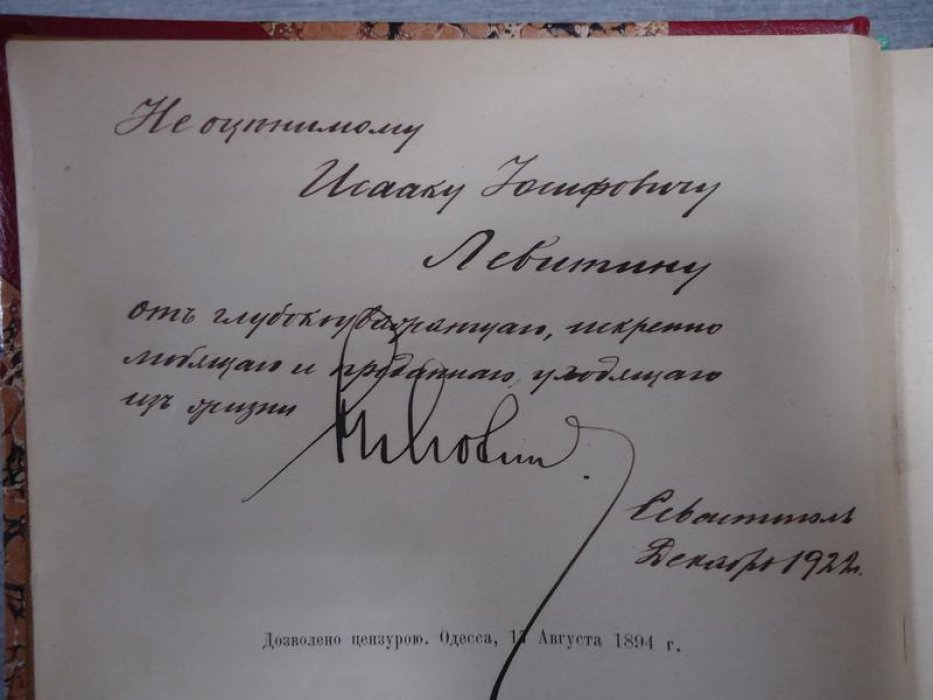 Не оцѣнимому
Исааку Іосифовичу
Левитину
отъ глубокоуважающаго, искренно
любящаго и преданнаго, уходящаго
изъ жизни
Севастополь
Декабрь 1922 г.
Дозволено цензурою. Одесса, Августа 1894 г.